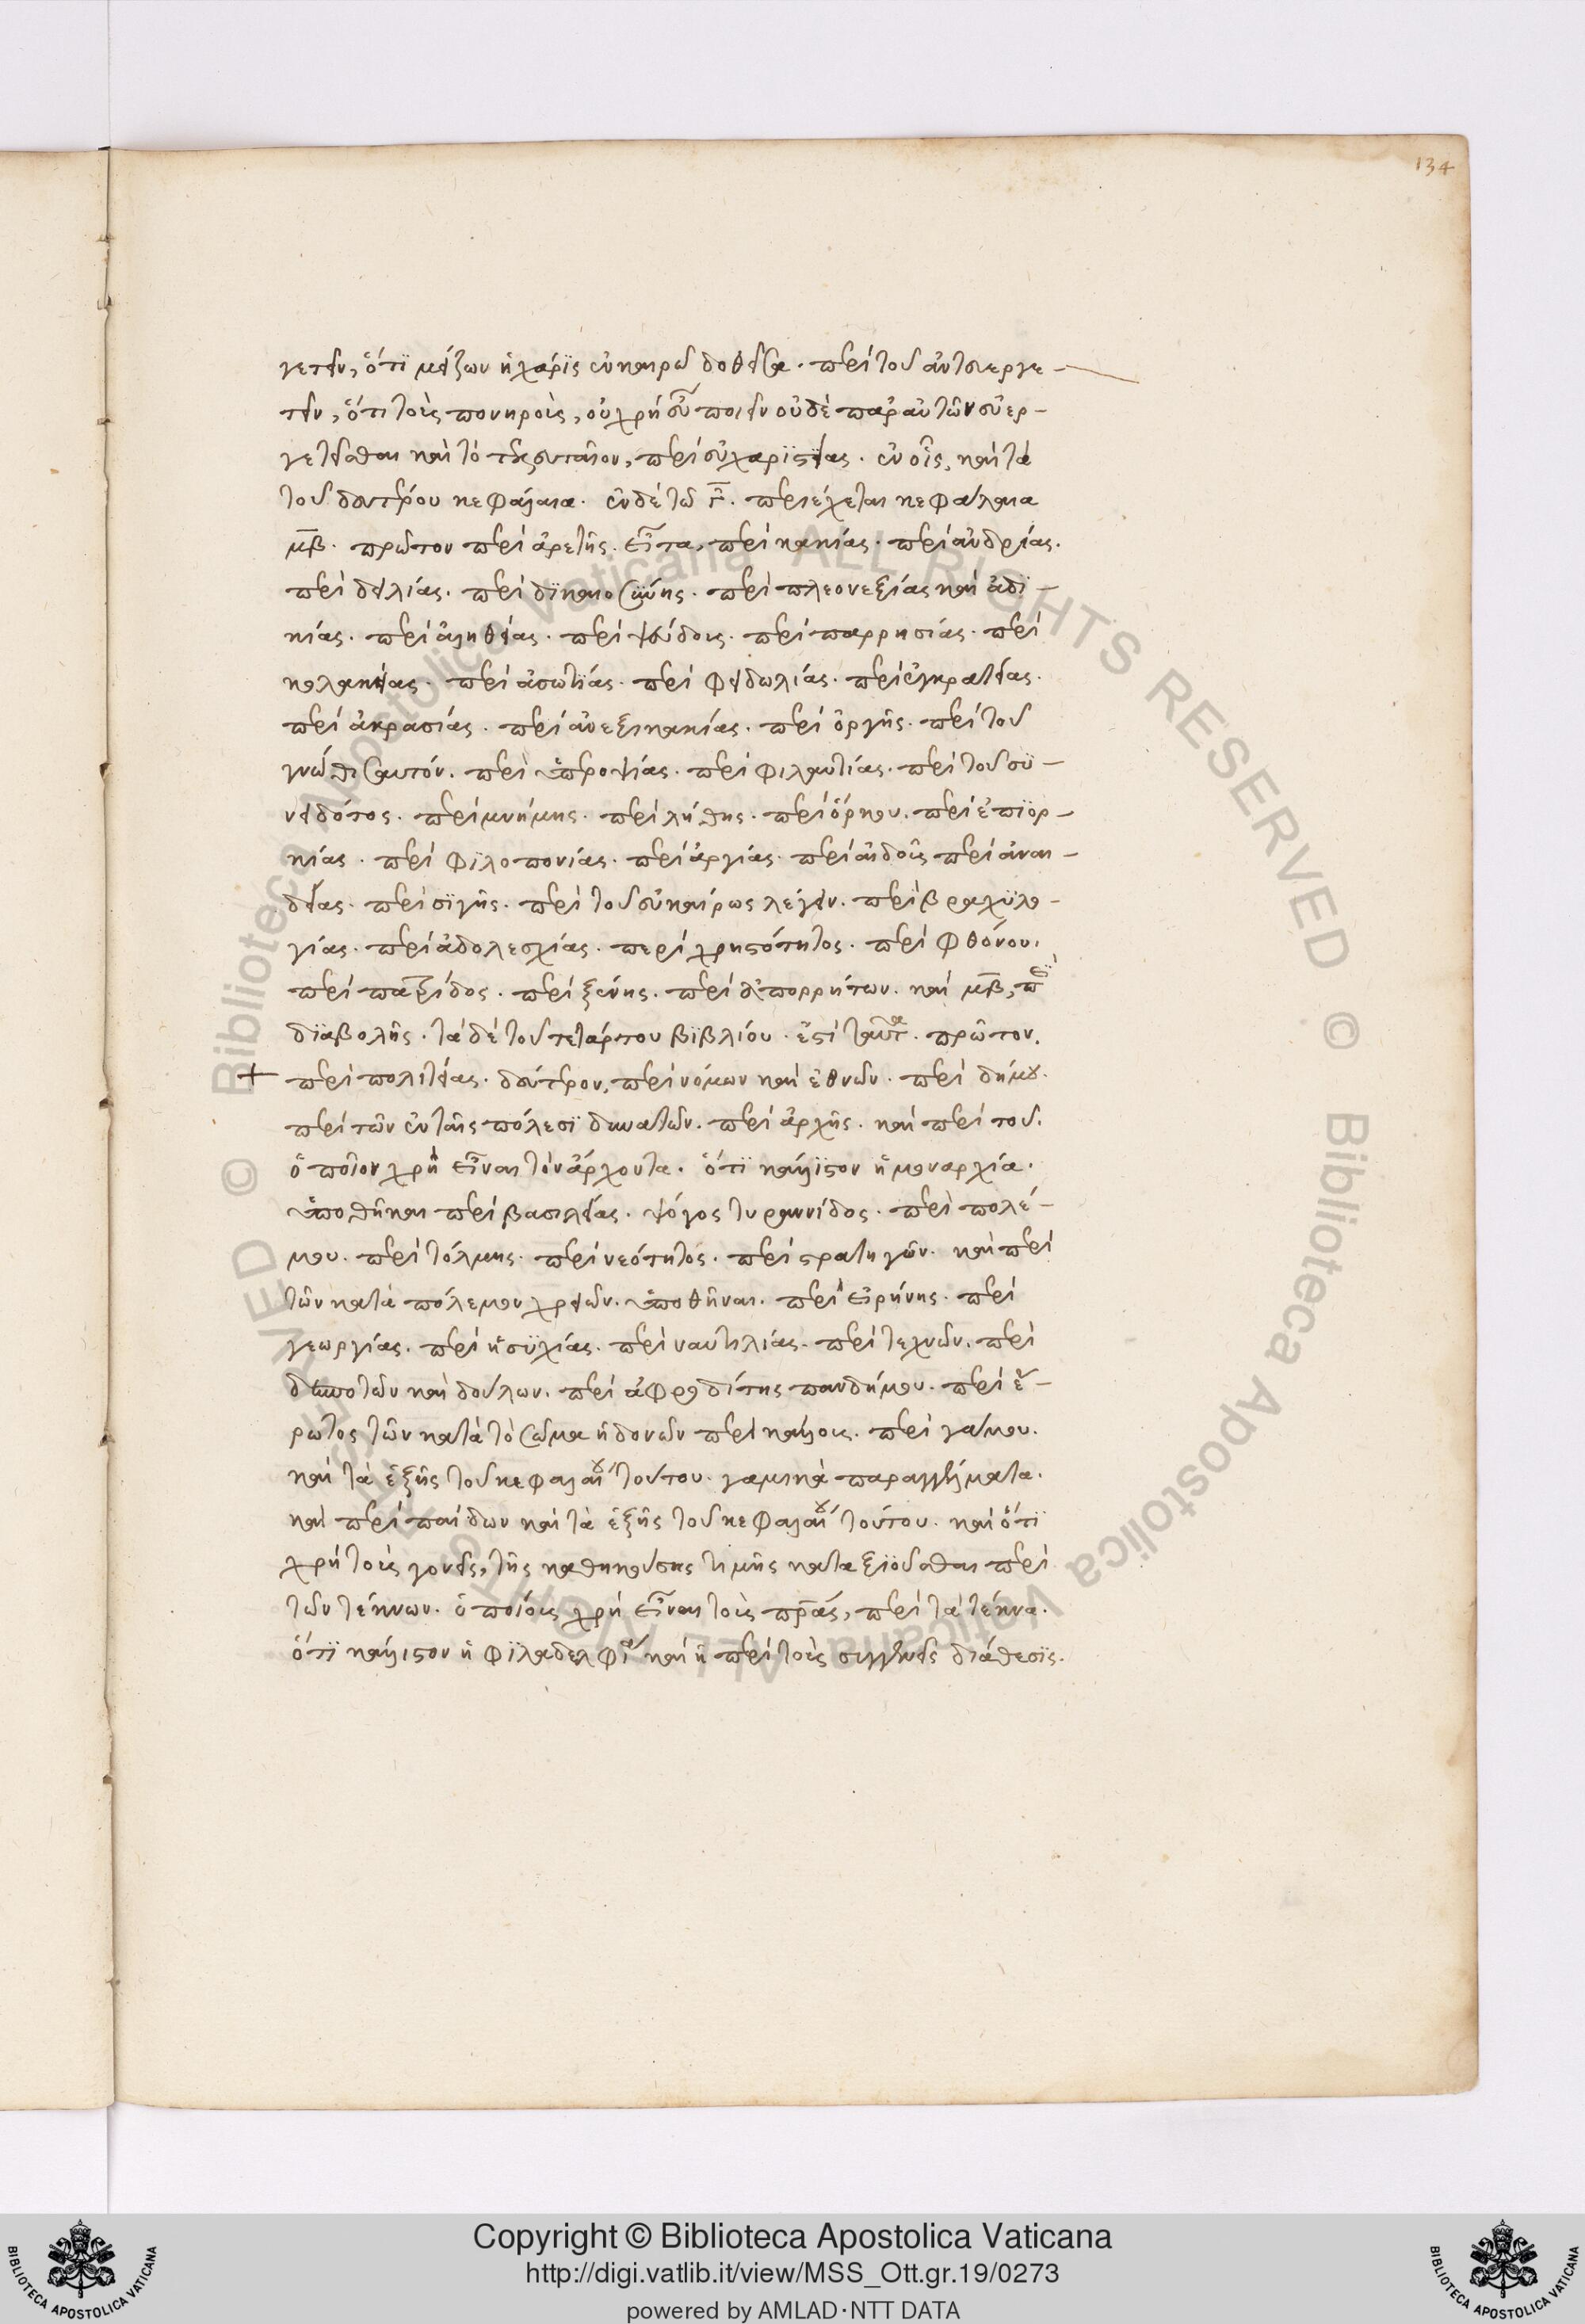 134
γετεῖν, ὅτϊ μείζων ἡ χάρϊς ἐν καιρῶ δοθεῖσα. περὶ τοῦ ἀντευεργε-
τεῖν, ὅτι τοὺς πονηροὺς, οὐ χρὴ εὖ ποιεῖν οὐδὲ παρ' αὐτῶν εὐερ-
γετεῖσθαι καὶ τὸ τελευταῖον, περὶ εὐχαρϊστίας. ἐν οἷς, καὶ τὰ
τοῦ δευτέρου κεφάλαια. ἐν δὲ τῶ γ̅. περιέχεται κεφάλαια
μ̅β. πρῶτον περὶ ἀρετῆς. εἶτα, περὶ κακίας. περὶ ἀνδρίας.
περὶ δειλίας. περὶ δϊκαιοσύνης. περὶ πλεονεξίας καὶ ἀδϊ-
κίας. περὶ ἀληθείας. περὶ ψεύδους. περὶ παρρησίας. περὶ
κολακείας. περὶ ἀσωτίας. περὶ φειδωλίας. περὶ ἐγκρατείας.
περὶ ἀκρασίας. περὶ ἀνεξικακίας. περὶ ὀργῆς. περὶ τοῦ
γνῶθι σαυτόν. περὶ ὑπεροψίας. περὶ φιλαυτίας. περὶ τοῦ συ-
νειδότος. περὶ μνήμης. περὶ λήθης. περὶ ὅρκου. περὶ ἐπϊορ-
κίας. περὶ φϊλοπονίας. περὶ ἀργίας. περὶ αἰδοῦς περὶ ἀναι-
δείας. περὶ σϊγῆς. περὶ τοῦ εὐκαίρως λέγειν. περὶ βραχϋλο-
γίας. περὶ ἀδολεσχίας. περὶ χρηστότητος. περὶ φθόνου.
περὶ πατρίδος. περὶ ξένης. περὶ ἀπορρήτων. καὶ μ̅β, περὶ
δϊαβολῆς. τὰ δὲ τοῦ τετάρτου βϊβλίου. ἐστὶ ταῦτα. πρῶτον.
+ περὶ πολιτείας. δεύτερον, περὶ νόμων καὶ ἐθνῶν. περὶ δήμου.
περὶ τῶν ἐν ταῖς πόλεσϊ δυνατῶν. περὶ ἀρχῆς. καὶ περὶ τοῦ.
ὁποῖον χρὴ εἶναι τὸν ἄρχοντα. ὅτϊ κάλλϊστον ἡ μοναρχία.
ὑποθῆκαι περὶ βασιλείας. ψόγος τυραννίδος. περὶ πολέ-
μου. περὶ τόλμης. περὶ νεότητος. περὶ στρατηγῶν. καὶ περὶ
τῶν κατὰ πόλεμον χρειῶν. ὑποθῆκαι. περὶ εἰρήνης. περὶ
γεωργίας. περὶ ἡσϋχίας. περὶ ναυτηλίας. περὶ τεχνῶν. περὶ
δεσποτῶν καὶ δούλων. περὶ ἀφροδίτης πανδήμου. περὶ ἔ-
ρωτος τῶν κατὰ τὸ σῶμα ἡδονῶν περὶ κάλλους. περὶ γάμου.
καὶ τὰ ἑξῆς τοῦ κεφαλαίου τούτου. γαμικὰ παραγγέλματα.
καὶ περὶ παίδων καὶ τὰ ἑξῆς τοῦ κεφαλαίου τούτου. καὶ ὅτϊ
χρὴ τοὺς γονεῖς, τῆς καθηκούσης τιμῆς καταξϊοῦσθαι περὶ
τῶν τέκνων. ὁποίους χρὴ εἶναι τοὺς πρας, περὶ τὰ τέκνα.
ὅτϊ κάλλιστον ἡ φϊλαδελφία καὶ ἡ περὶ τοὺς συγγενεῖς διάθεσϊς.
Copyright © Biblioteca Apostolica Vaticana
http://digi.vatlib.it/view/MSS_Ott.gr.19/0273
powered by AMLAD·NTT DATA
BIBLIOTECA APOSTOLICA VATICANA
BIBLIOTECA APOSTOLICA VATICANA
© Biblioteca Apostolica Vaticana ALL RIGHTS RESERVED
© Biblioteca Apostolica Vaticana ALL RIGHTS RESERVED